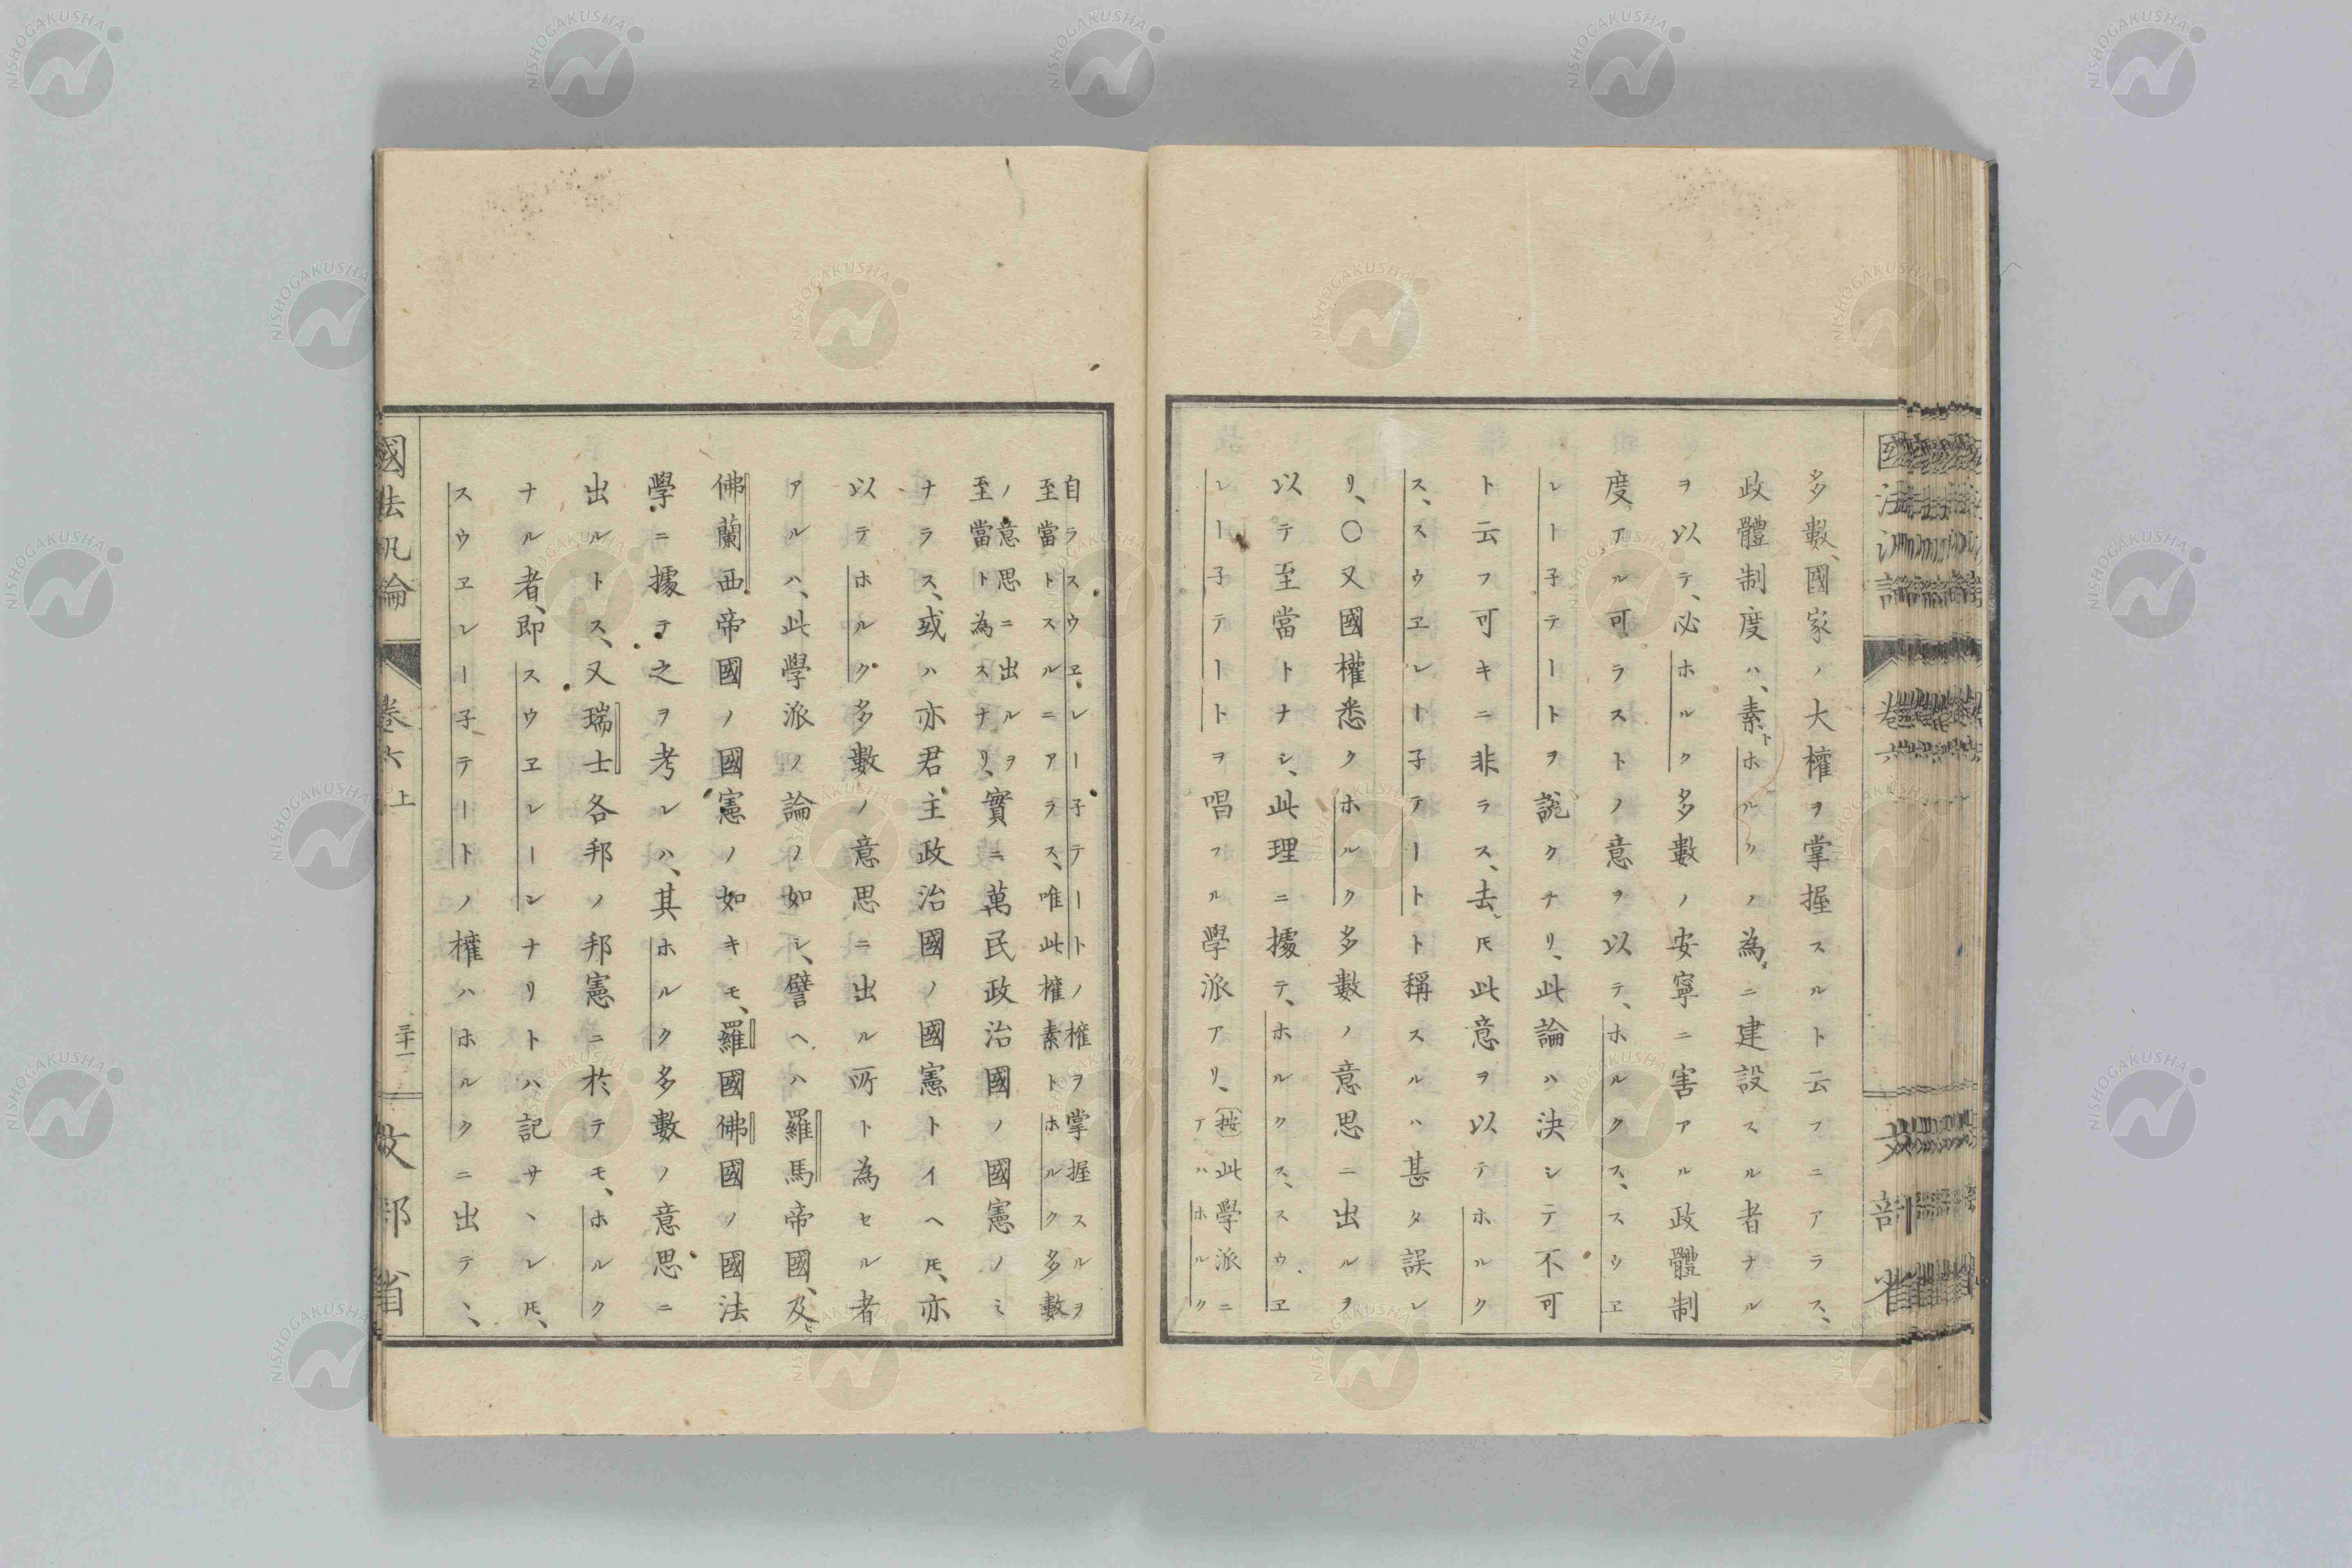 多數、國家ノ大權ヲ掌握スルト云フニアラス、
政體制度ハ、素トホルクノ為メニ建設スル者ナル
ヲ以テ、必ホルク多數ノ安寧ニ害アル政體制
度アル可ラストノ意ヲ以テ、ホルクス、スウヱ
レート子テートヲ說クナリ、此論ハ決シテ不可
ト云フ可キニ非ラス、去レ𪜈此意ヲ以テホルク
ス、スウヱレー子テートト稱スルハ甚タ誤レ
リ、〇又國權悉クホルク多數ノ意思ニ出ルヲ
以テ至當トナシ、此理ニ據テ、ホルクス、スウヱ
レー子テートヲ唱フル學派アリ、按此學派ニ
アハホルク
自ラスウヱレー子テートノ權ヲ掌握スルヲ
至當トスルニアラス、唯此權素トホルク多數
ノ意思ニ出ルヲ
至當ト為スナリ、實ニ萬民政治國ノ國憲ノミ
ナラス、或ハ亦君主政治國ノ國憲トイヘ𪜈、亦
以テホルク多數ノ意思ニ出ル所ト為セル者
アルハ、此學派ノ論ノ如シ、譬ヘハ羅馬帝國、及ヒ
佛蘭西帝國ノ國憲ノ如キモ、羅國佛國ノ國法
學ニ據テ之ヲ考レハ、其ホルク多數ノ意思ニ
出ルトス、又瑞士各邦ノ邦憲ニ於テモ、ホルク
ナル者、即スウヱレーンナリトハ記サヽレ𪜈、
スウヱレー子テートノ權ハホルクニ出テヽ、
國法汎論 卷六上 三十一 文部省
NISHOGAKUSHA